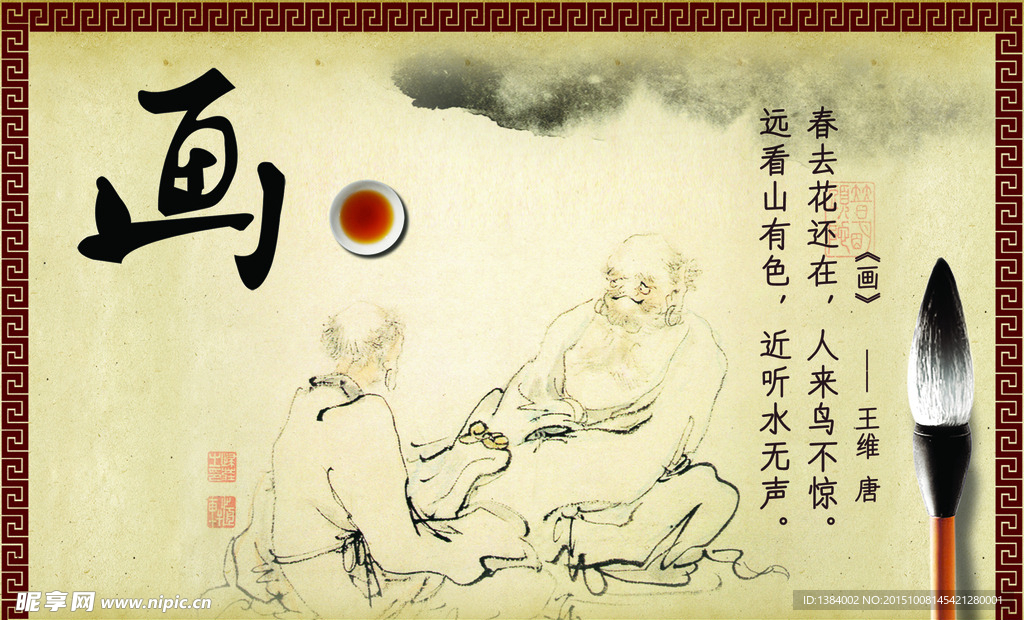 画
《画》
——王维 唐
春去花还在，人来鸟不惊。
远看山有色，近听水无声。
昵享网 www.nipic.cn
ID:1384002 NO:20151008145421280001